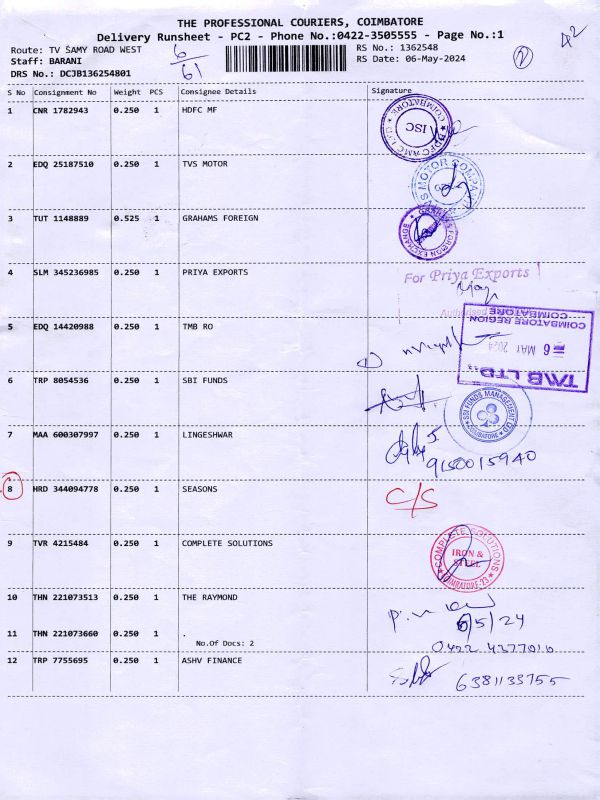 THE PROFESSIONAL COURIERS, COIMBATORE
Delivery Runsheet - PC2 - Phone No.:0422-3505555 - Page No.:1
Route: TV SAMY ROAD WEST
6/61
RS No.: 1362548
Staff: BARANI
RS Date: 06-May-2024
2
DRS No.: DCJB136254801
S No Consignment No Weight PCS Consignee Details Signature
1 CNR 1782943 0.250 1 HDFC MF
ISC
COIMBATORE
2 EDQ 25187510 0.250 1 TVS MOTOR
3 TUT 1148889 0.525 1 GRAHAMS FOREIGN
4 SLM 345236985 0.250 1 PRIYA EXPORTS
For Priya Exports
5 EDQ 14420988 0.250 1 TMB RO
COIMBATORE
COIMBATORE REGION
6 MAY 2024
TMB LTD
6 TRP 8054536 0.250 1 SBI FUNDS
SBI FUNDS MANAGEMENT LTD
COIMBATORE
7 MAA 600307997 0.250 1 LINGESHWAR
9150015940
8 HRD 344094778 0.250 1 SEASONS
C/S
9 TVR 4215484 0.250 1 COMPLETE SOLUTIONS
COMPLETE SOLUTIONS
IRON &
STEEL
COIMBATORE-23
10 THN 221073513 0.250 1 THE RAYMOND
6/5/24
11 THN 221073660 0.250 1 .
No.Of Docs: 2
0422 4377010
12 TRP 7755695 0.250 1 ASHV FINANCE
6381133755